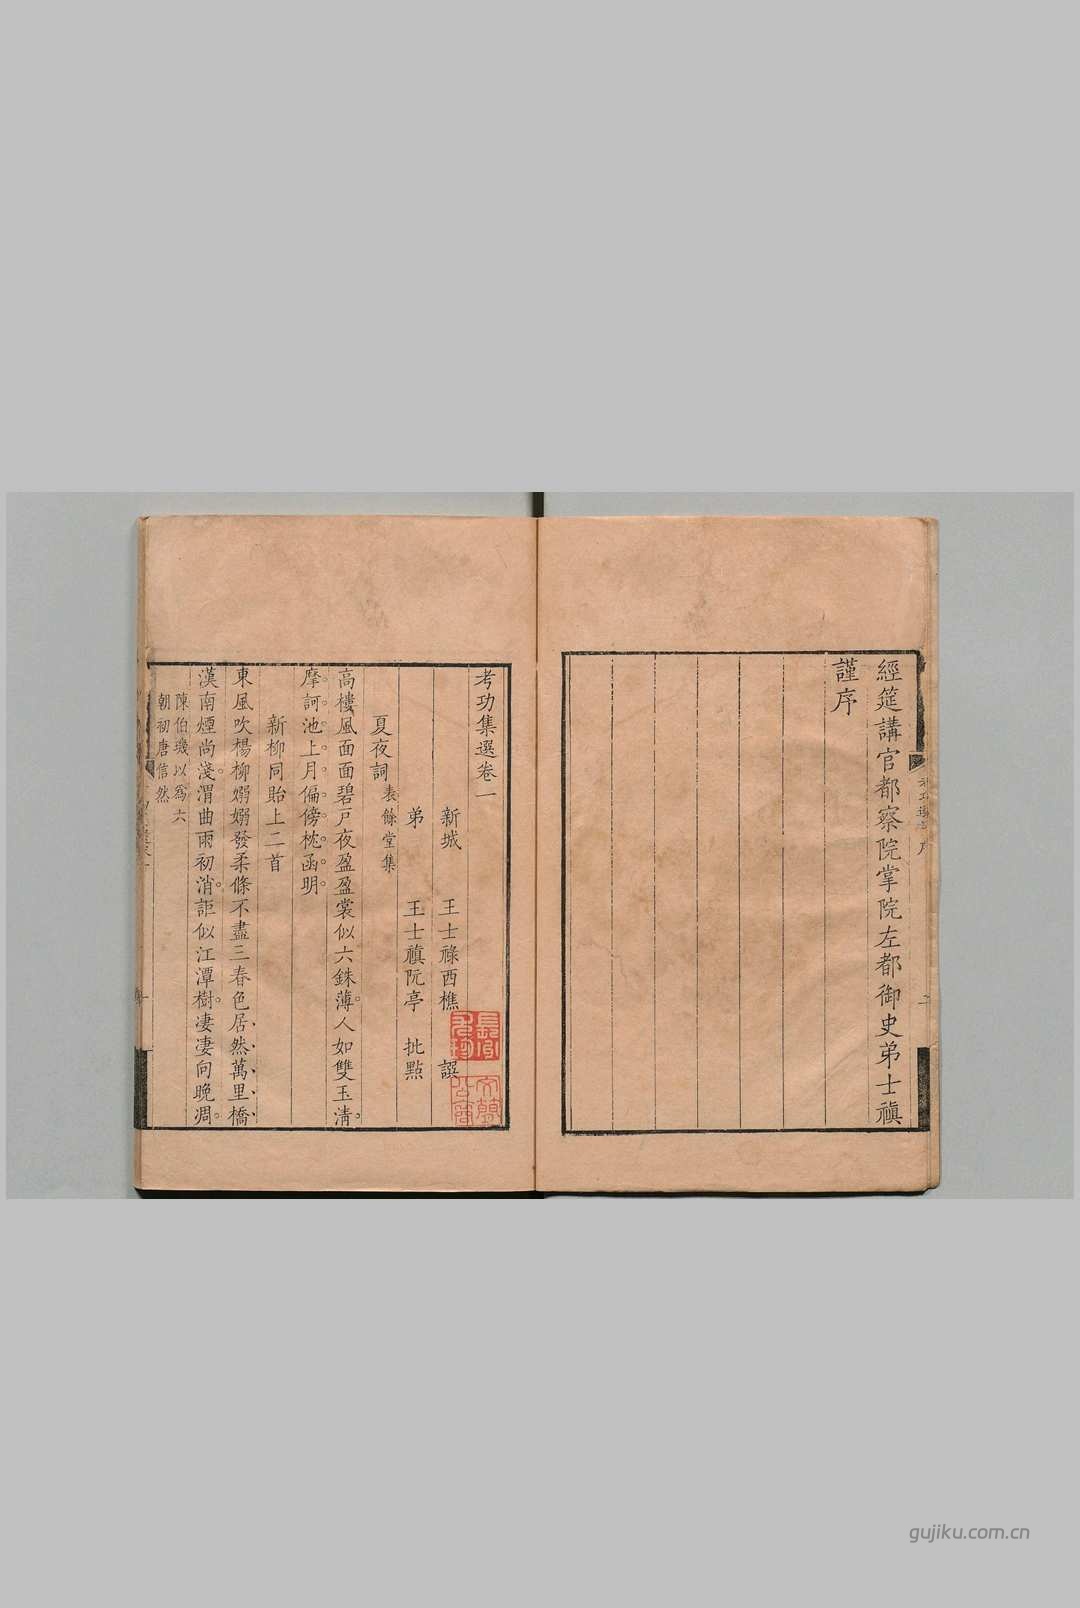 經筵講官都察院掌院左都御史弟士禛
謹序
考功集選卷一
新城 王士祿西樵 譔
弟 王士禛阮亭 批點
夏夜詞 表餘堂集
高樓風面面碧戸夜盈盈裳似六銖薄人如雙玉清
摩訶池上月偏傍枕函明
新柳同貽上二首
東風吹楊柳嫋嫋發柔條不盡三春色居然萬里橋
漢南煙尚淺渭曲雨初消詎似江潭樹凄凄向晚凋
陳伯璣以為六
朝初唐信然
gujiku.com.cn